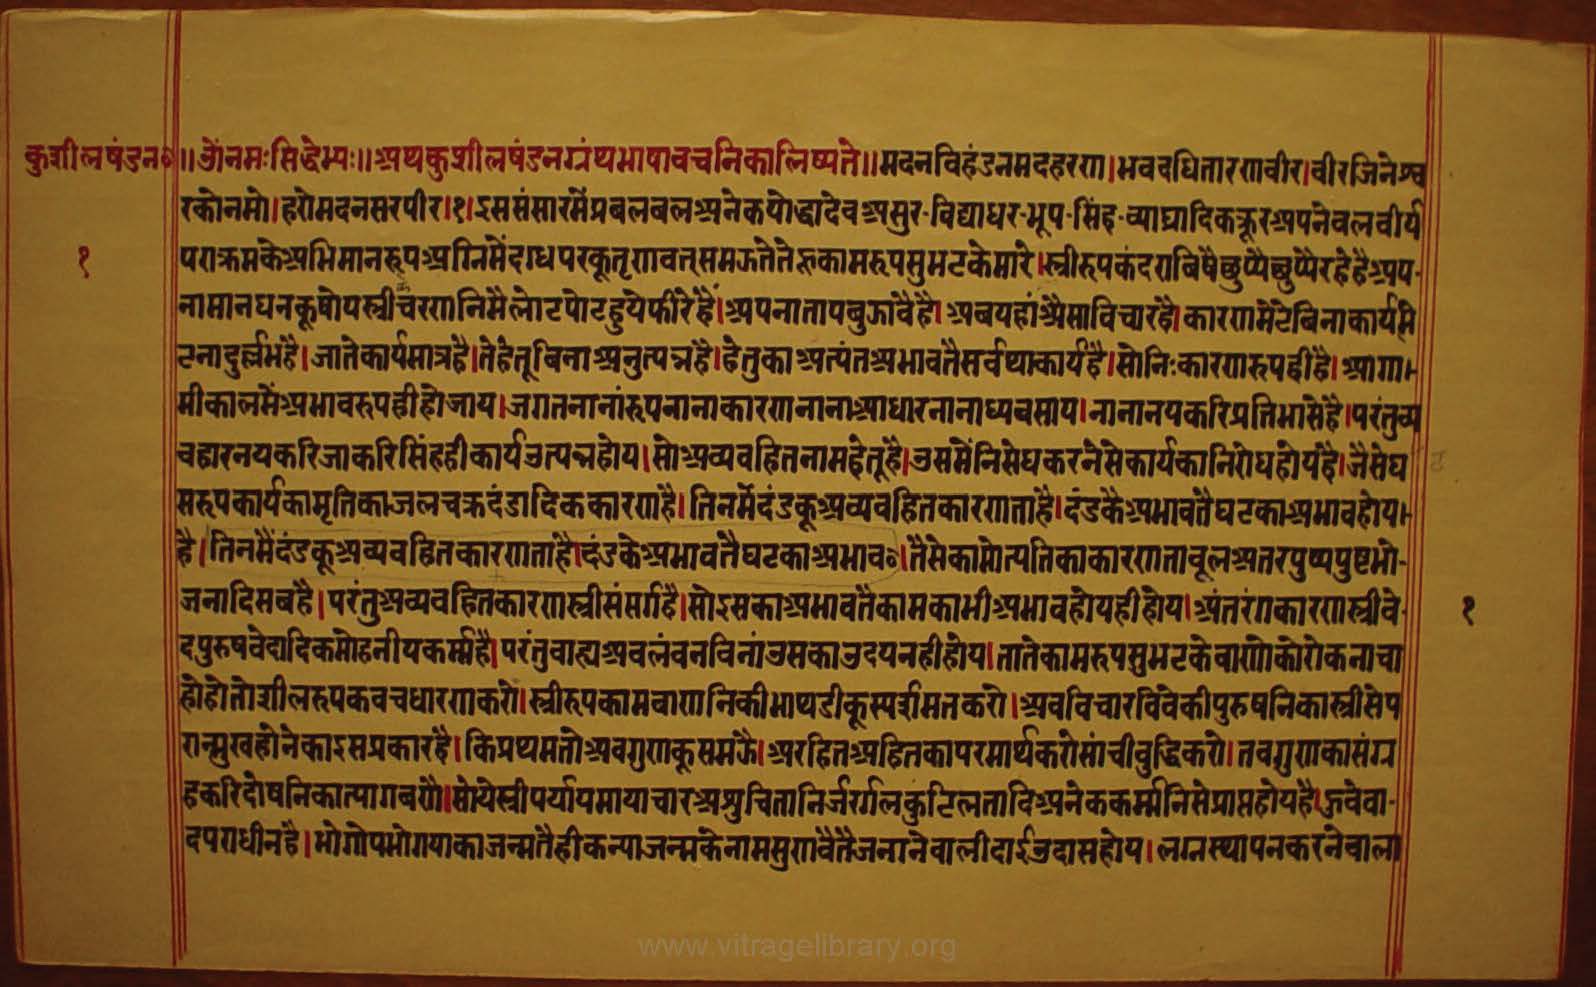 कुशीलषंडन०॥ॐनमःसिद्धेभ्यः॥अथकुशीलषंडनग्रंथभाषावचनिकालिष्यते॥मदनविहंडनमदहरण।भवदधितारणवीर।वीरजिनेश्व
रकोनमो।हरोमदनसरपीर।१।इससंसारमैंप्रबलबलअनेकयोद्धादेवअसुर-विद्याधर-भूप-सिंह-व्याघ्रादिकक्रूरअपनेबलवीर्य
१
पराक्रमकेअभिमानरूपअग्निमेंदग्धपरकूतृणवत्समऊतेतेहूकामरुपसुभटकेमारे।स्त्रीरुपकंदराबिषैछुप्यैछुप्यैरहेहैअप-
नामानधनकूषोयस्त्रीचरणनिमैलोटपोटहुयेफीरेहैं।अपनातापबुऊावैहै।अबयहांऐसाविचारहै।कारणमेटेबिनाकार्यमे
टनादुर्ल्लभहै।जातेकार्यमात्रहै।तेहेतूबिनाअनुत्पन्नहै।हेतुकाअत्यंतअभावतैसर्वथाकार्यहै।सोनिःकारणरुपहीहै।आगा-
मीकालमेंअभावरुपहीहोजाय।जगतनानांरुपनानाकारणनानाआधारनानाध्यवसाय।नानानयकरिप्रतिभासेहै।परंतुव्य
वहारनयकरिजाकरिसिंहहीकार्यउत्पन्नहोय।सोअव्यवहितनामहेतूहै।उसमेंनिसेधकरनैसेकार्यकानिरोधहोयहै।जैसेघ
ट
सरूपकार्यकामृतिकाजलचक्रदंडादिककारणहै।तिनमेंदंडकूअव्यवहितकारणताहै।दंडकैअभावतैघटकाअभावहोय।-
है।तिनमैंदंडकूअव्यवहितकारणताहै।दंडकेअभावतैघटकाअभाव०।तैसेकामोत्पतिकाकारणतावूलअतरपुष्पपुष्टभो-
जनादिसबहै।परंतुअव्यवहितकारणस्त्रीसंसर्गहै।सोइसकाअभावतैकामकाभीअभावहोयहीहोय।अंतरंगकारणस्त्रीवे-
१
दपुरुषवेदादिकमोहनीयकर्म्महै।परंतुवाह्यअवलंवनविनांउसकाउदयनहीहोय।तातेकामरुपसुभटकेबाणोकोरोकनाचा
होहोतोशीलरुपकवचधारणकरो।स्त्रीरुपकामबाणनिकीभाथडीकूस्पर्शमतकरो।अवविचारविवेकीपुरुषनिकास्त्रीसेप
रान्मुखहोनेकाइसप्रकारहै।किप्रथमतोअवगुणकूसमऊै।अरहितअहितकापरमार्थकरोसांचीवुद्धिकरो।तवगुणकासंग्र
हकरिदोषनिकात्यागबणै।सोयेस्त्रीपर्यायमायाचारअशुचितानिर्जरर्गलकुटिलतादिअनेककर्म्मनिसेप्राप्तहोयहै।ऊवेवा-
दपराधीनहै।भोगोपभोगयाकाजन्मतैहीकन्याजन्मकेनामसुणवैतैजनानेवालीदाईउदासहोय।लग्नस्थापनकरनेबाला
www.vitragelibrary.org